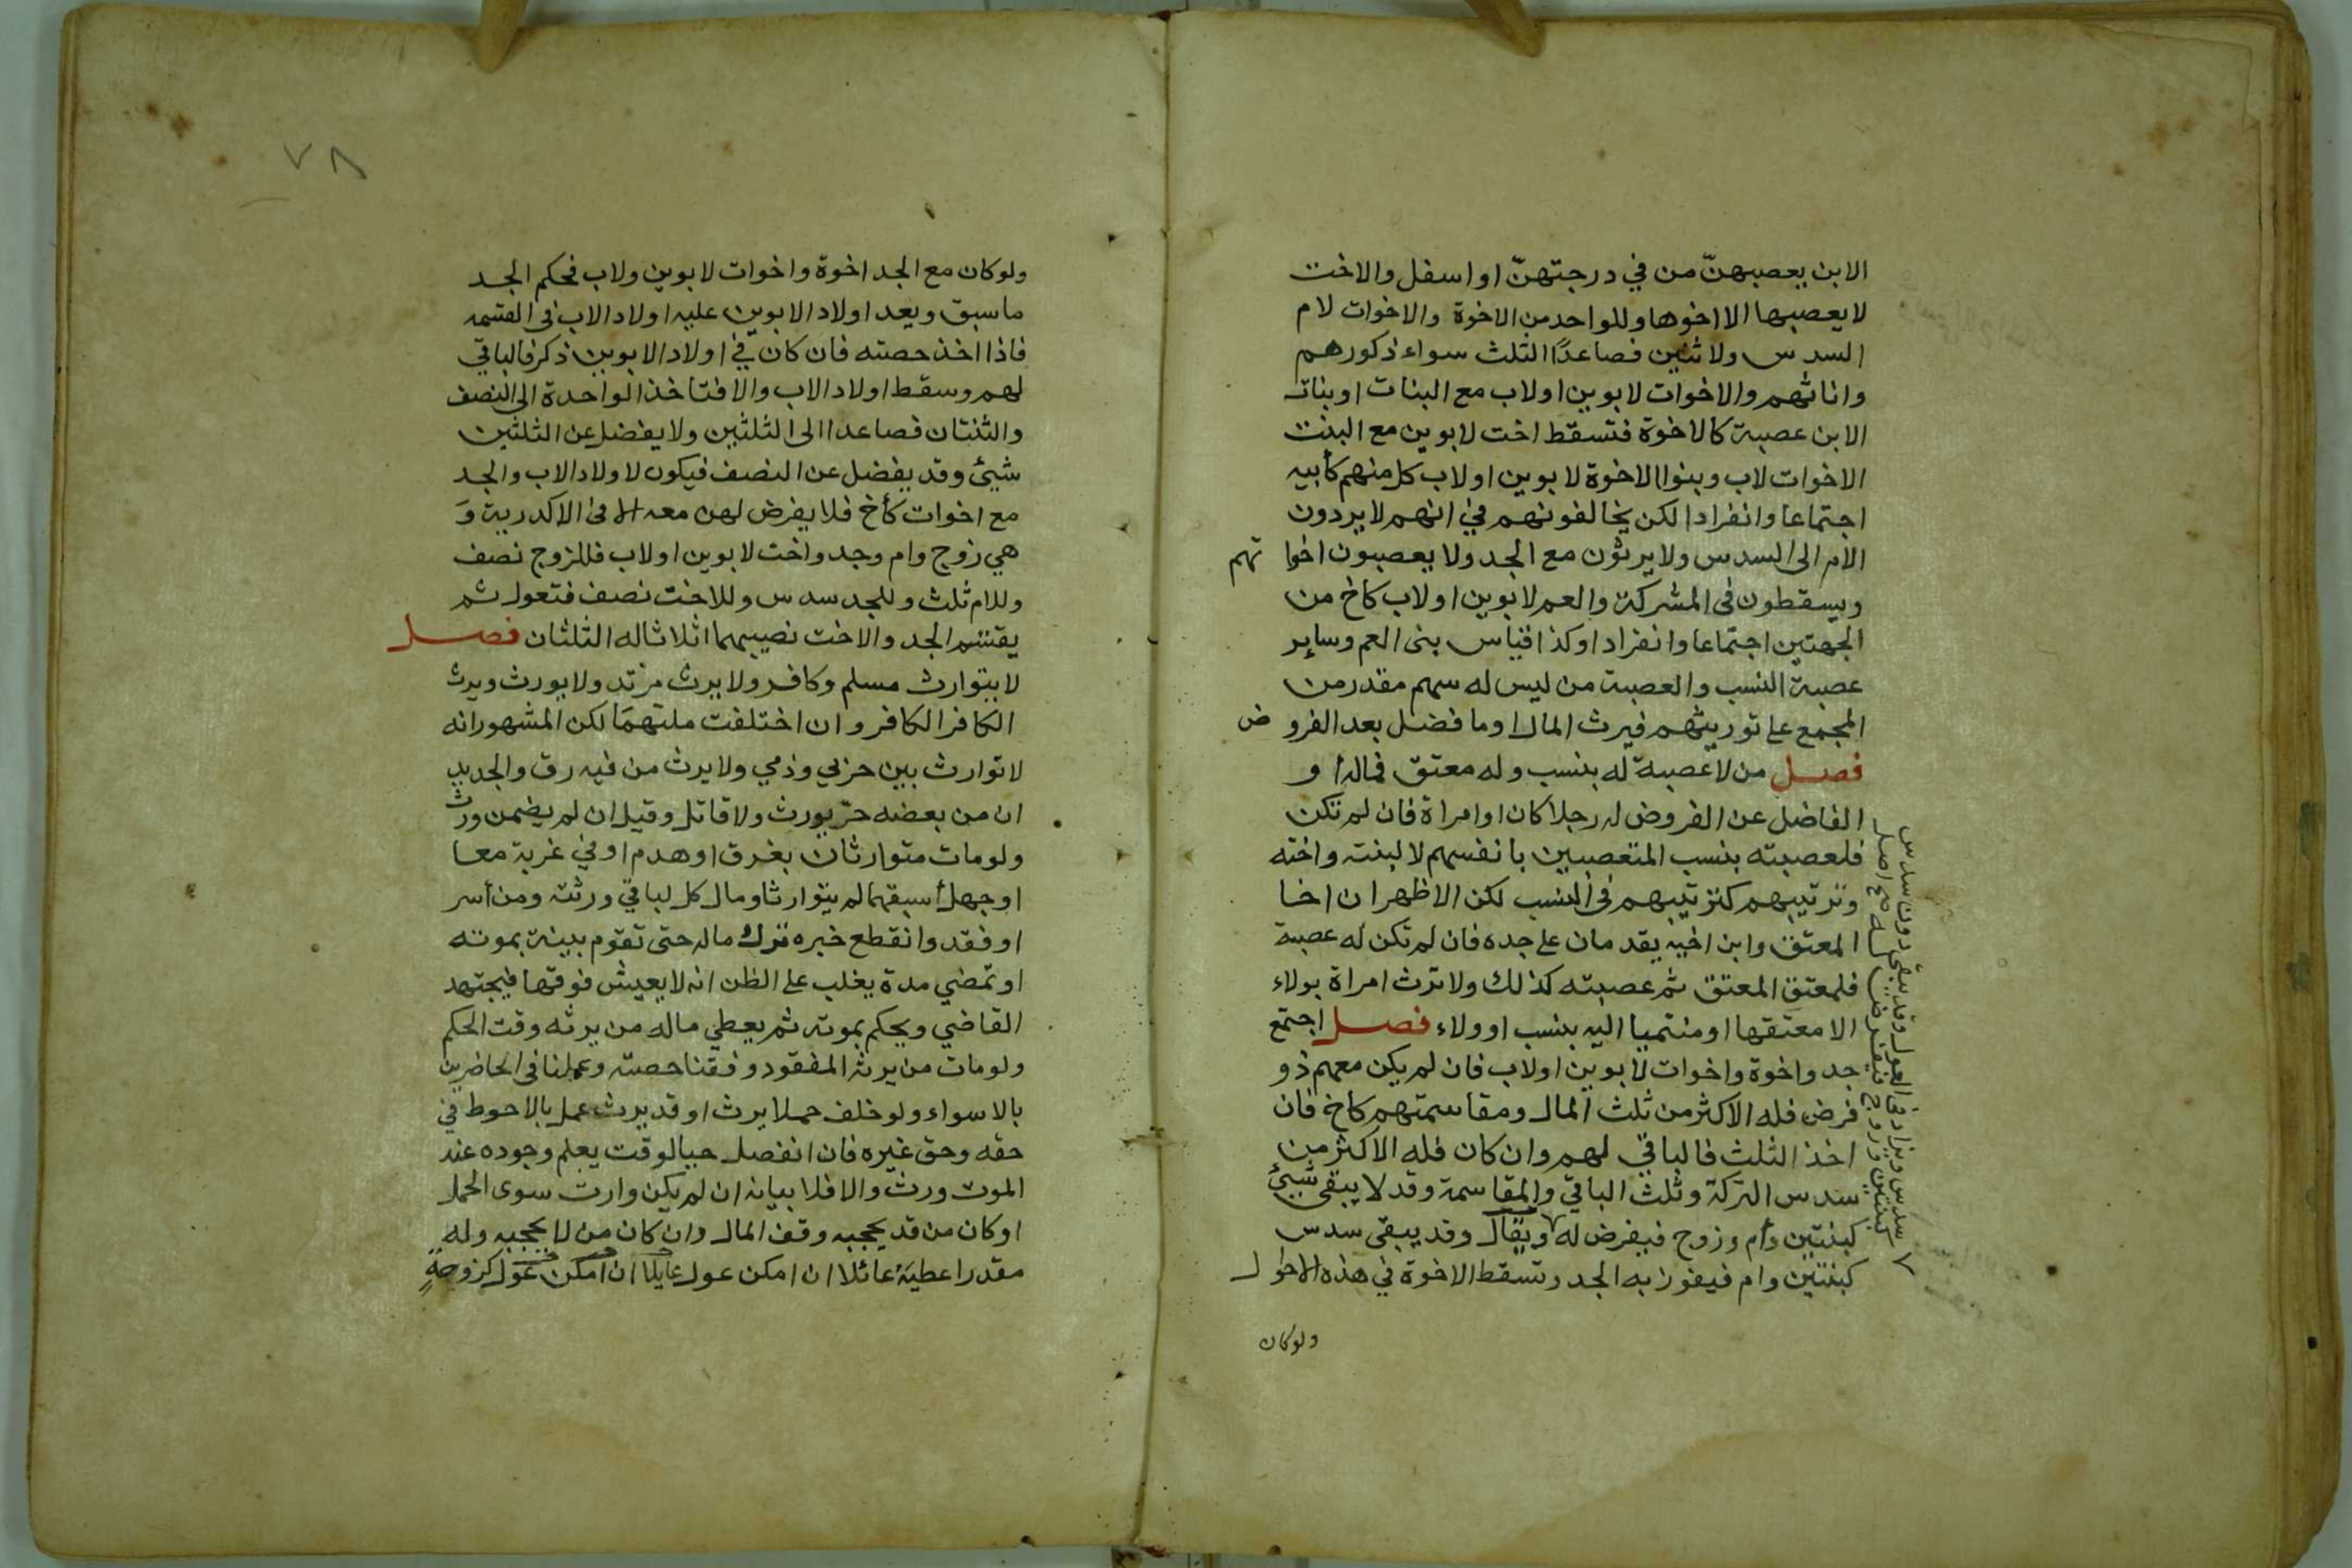 الابن يعصبهنّ من في درجتهنّ او اسفل والاخت
لا يعصبها الا اخوها وللواحد من الاخوة والاخوات لام
السدس ولاثنين فصاعدًا الثلث سواء ذكورهم
واناثهم والاخوات لابوين او لاب مع البنات او بنات
الابن عصبة كالاخوة فتسقط اخت لابوين مع البنت
الاخوات لاب وبنوا الاخوة لابوين او لاب كل منهم كأبيه
اجتماعا وانفرادا لكن يخالفونهم في انهم لا يردون
الام الى السدس ولا يرثون مع الجد ولا يعصبون اخواتهم
ويسقطون في المشركة والعم لابوين او لاب كاخ من
الجهتين اجتماعا وانفرادا وكذا قياس بنى العم وساير
عصبة النسب والعصبة من ليس له سهم مقدر من
المجمع على توريثهم فيرث المال او ما فضل بعد الفروض
فصل من لا عصبة له بنسب وله معتق فماله او
الفاضل عن الفروض له رجلا كان او امراة فان لم تكن
فلعصبته بنسب المتعصبين بانفسهم لا لبنته واخته
وترتيبهم كترتيبهم في النسب لكن الاظهر ان اخا
المعتق وابن اخيه يقدمان على جده فان لم تكن له عصبة
فلمعتق المعتق ثم عصبته كذلك ولا ترث امراة بولاء
الا معتقها او منتميا اليه بنسب او ولاء فصل اجتمع
جد واخوة واخوات لابوين او لاب فان لم يكن معهم ذو
فرض فله الاكثر من ثلث المال ومقاسمتهم كاخ فان
اخذ الثلث فالباقي لهم وان كان فله الاكثر من
سدس التركة وثلث الباقي والمقاسمة وقد لا يبقى شيئ
كبنتين وام وزوج فيفرض له ويقال وقد يبقى سدس
كبنتين وام فيفوز به الجد وتسقط الاخوة في هذه الاحوال
سدس ويزاد في العول وقد يبقى دون سدس
كبنتين وزوج فيفرض له صح اصل
ولوكان
٧٨
ولو كان مع الجد اخوة واخوات لابوين ولاب فحكم الجد
ما سبق ويعد اولاد الابوين عليه اولاد الاب في القسمه
فاذا اخذ حصته فان كان في اولاد الابوين ذكر فالباقي
لهم وسقط اولاد الاب والا فتاخذ الواحدة الى النصف
والثنتان فصاعدا الى الثلثين ولا يفضل عن الثلثين
شيئ وقد يفضل عن النصف فيكون لاولاد الاب والجد
مع اخوات كأخ فلا يفرض لهن معه الا في الاكدرية وَ
هي زوج وام وجد واخت لابوين او لاب فللزوج نصف
وللام ثلث وللجد سدس وللاخت نصف فتعول ثم
يقتسم الجد والاخت نصيبهما اثلاثا له الثلثان فصل
لا يتوارث مسلم وكافر ولا يرث مرتد ولا يورث ويرث
الكافر الكافر وان اختلفت ملتهما لكن المشهور انه
لا توارث بين حربي وذمي ولا يرث من فيه رق والجديد
ان من بعضه حرّ يورث ولا قاتل وقيل ان لم يضمن ورث
ولو مات متوارثان بغرق او هدم او في غربة معا
او جهل أسبقهما لم يتوارثا ومال كل لباقي ورثته ومن أسر
او فقد وانقطع خبره ترك ماله حتى تقوم بينة بموته
او تمضي مدة يغلب على الظن انه لا يعيش فوقها فيجتهد
القاضي ويحكم بموته ثم يعطي ماله من يرثه وقت الحكم
ولو مات من يرثه المفقود وفقنا حصته وعملنا في الحاضرين
بالاسواء ولو خلف حملا يرث او قد يرث عمل بالاحوط في
حقه وحق غيره فان انفصل حيا لوقت يعلم وجوده عند
الموت ورث والا فلا بيانه ان لم يكن وارث سوى الحمل
او كان من قد يحجبه وقف المال وان كان من لا يحجبه وله
مقدر اعطيَهُ عائلا ان امكن عول عايلا ان امكن عول كزوجةٍ